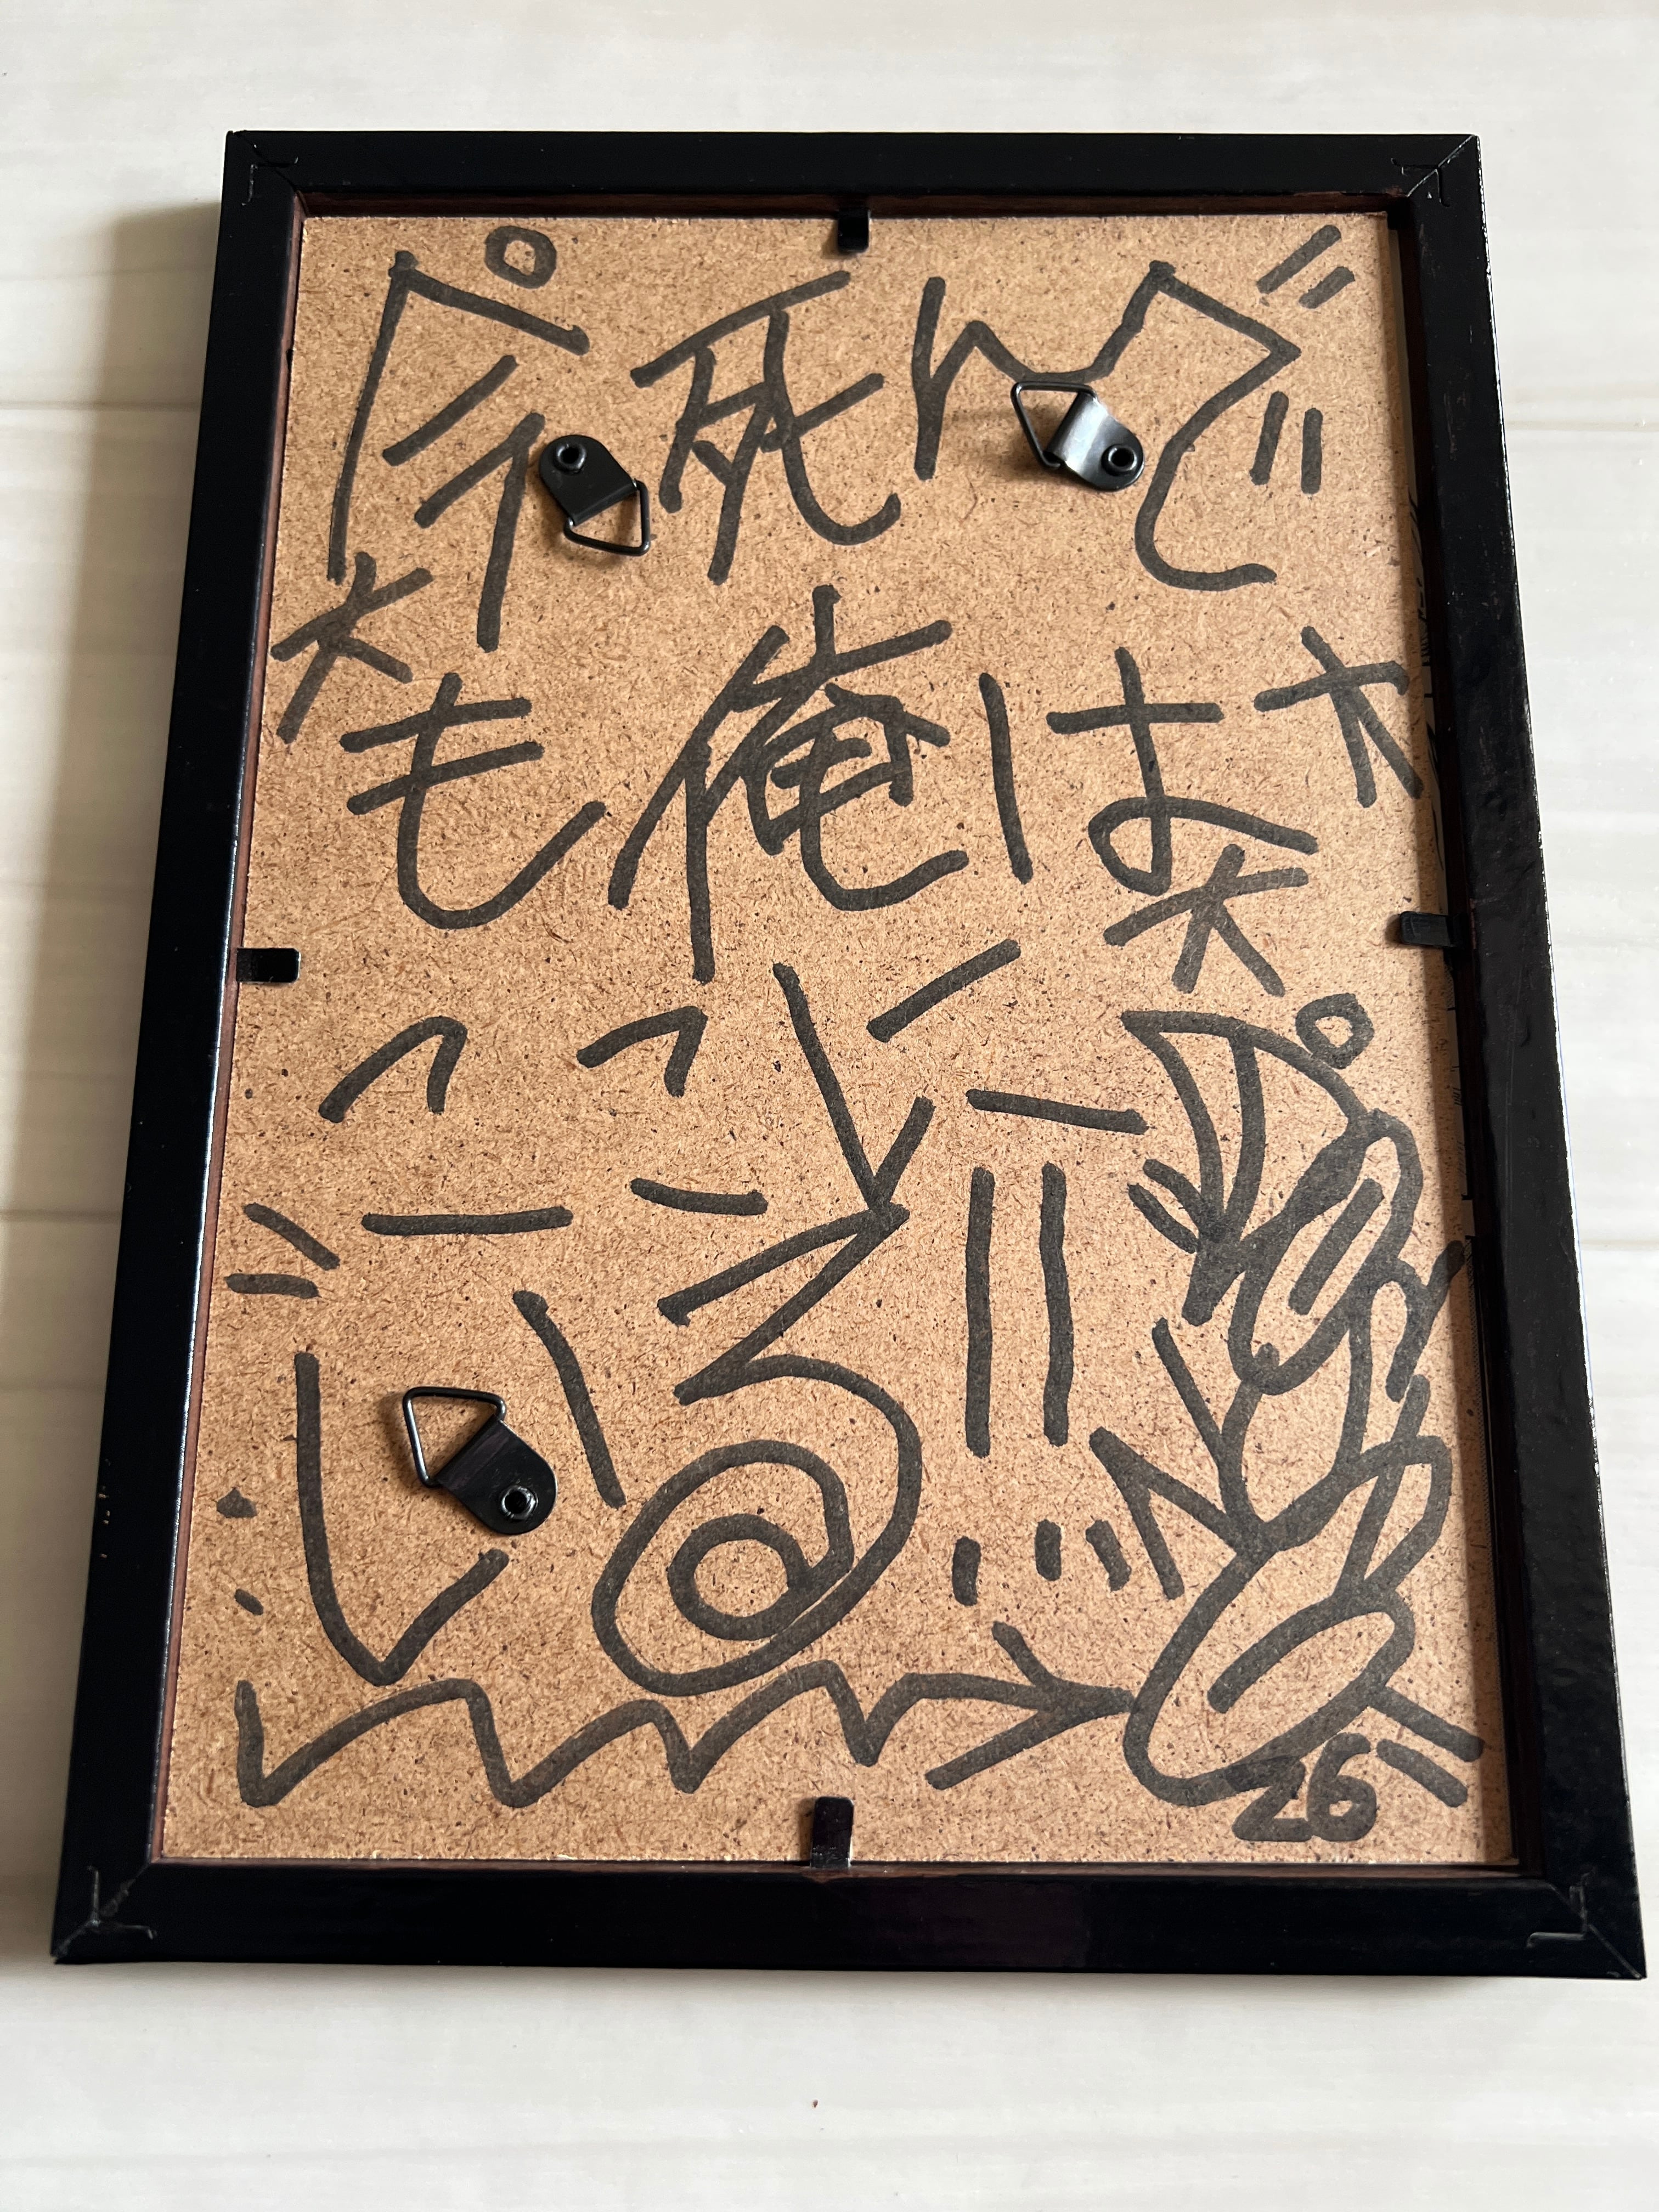 今死んで
も俺は
ここに
いる!!
26